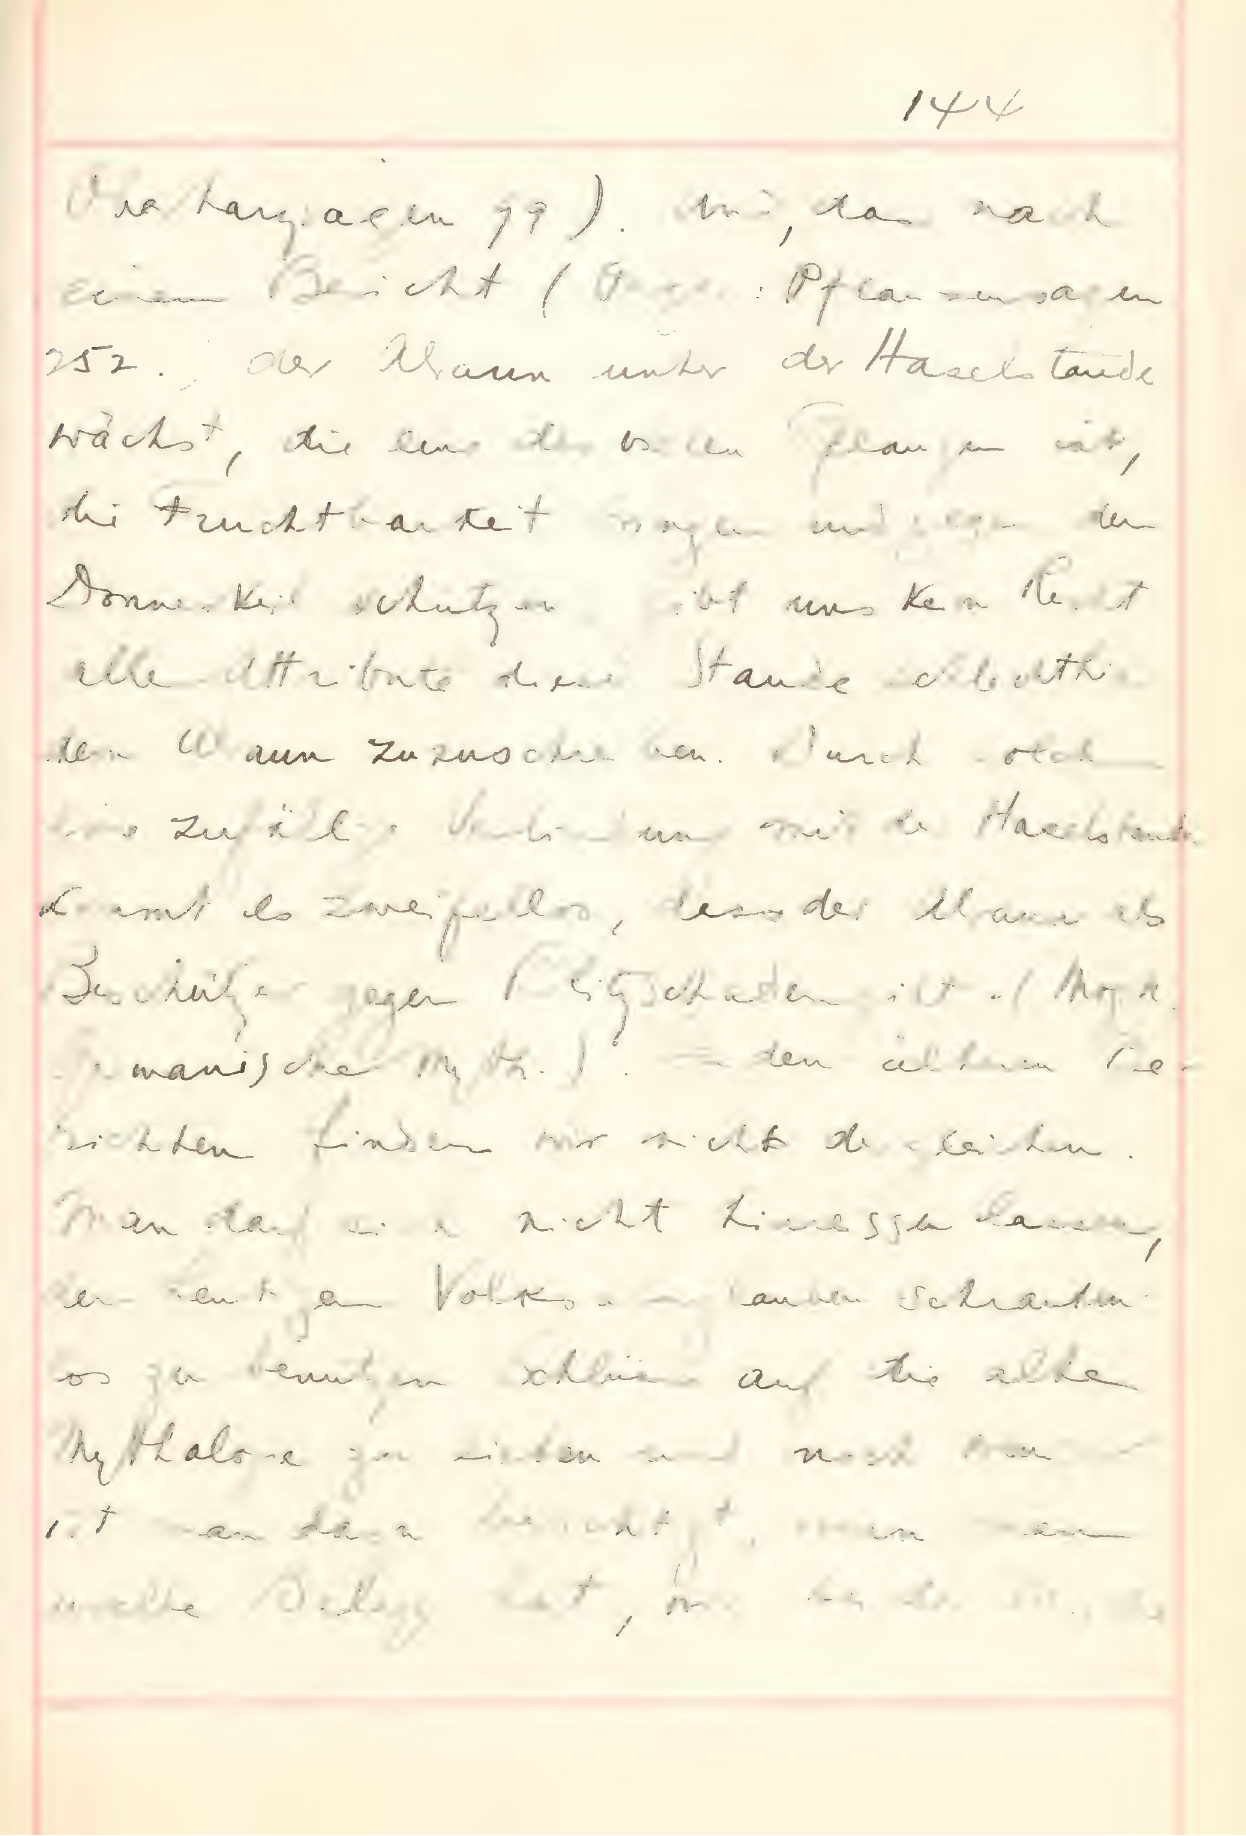 144
Oberharzsagen 99). Und, dass nach
einem Bericht ( : Pflanzensagen
252., der Alraun unter der Haselstaude
wächst, die eine der vielen Pflanzen ist,
die Fruchtbarkeit bringen und gegen den
Donnerkeil schützen gibt uns kein Recht
alle Attribute dieser Staude schlechthin
dem Alraun zuzuschreiben. Durch solch
eine zufällige Verbindung mit der Haselstaude
kommt es zweifellos, dass der Alraun als
Beschützer gegen Blitzschaden gilt. (Mogk
Germanische Myth.). In den älteren Be-
richten finden wir nichts dergleichen.
Man darf sich nicht hinreissen lassen,
den heutigen Volks schranken-
los zu benutzen Schlüsse auf die alte
Mythologie zu ziehen und noch
ist man dazu berechtigt, wenn man
uralte Belege hat, wie bei der